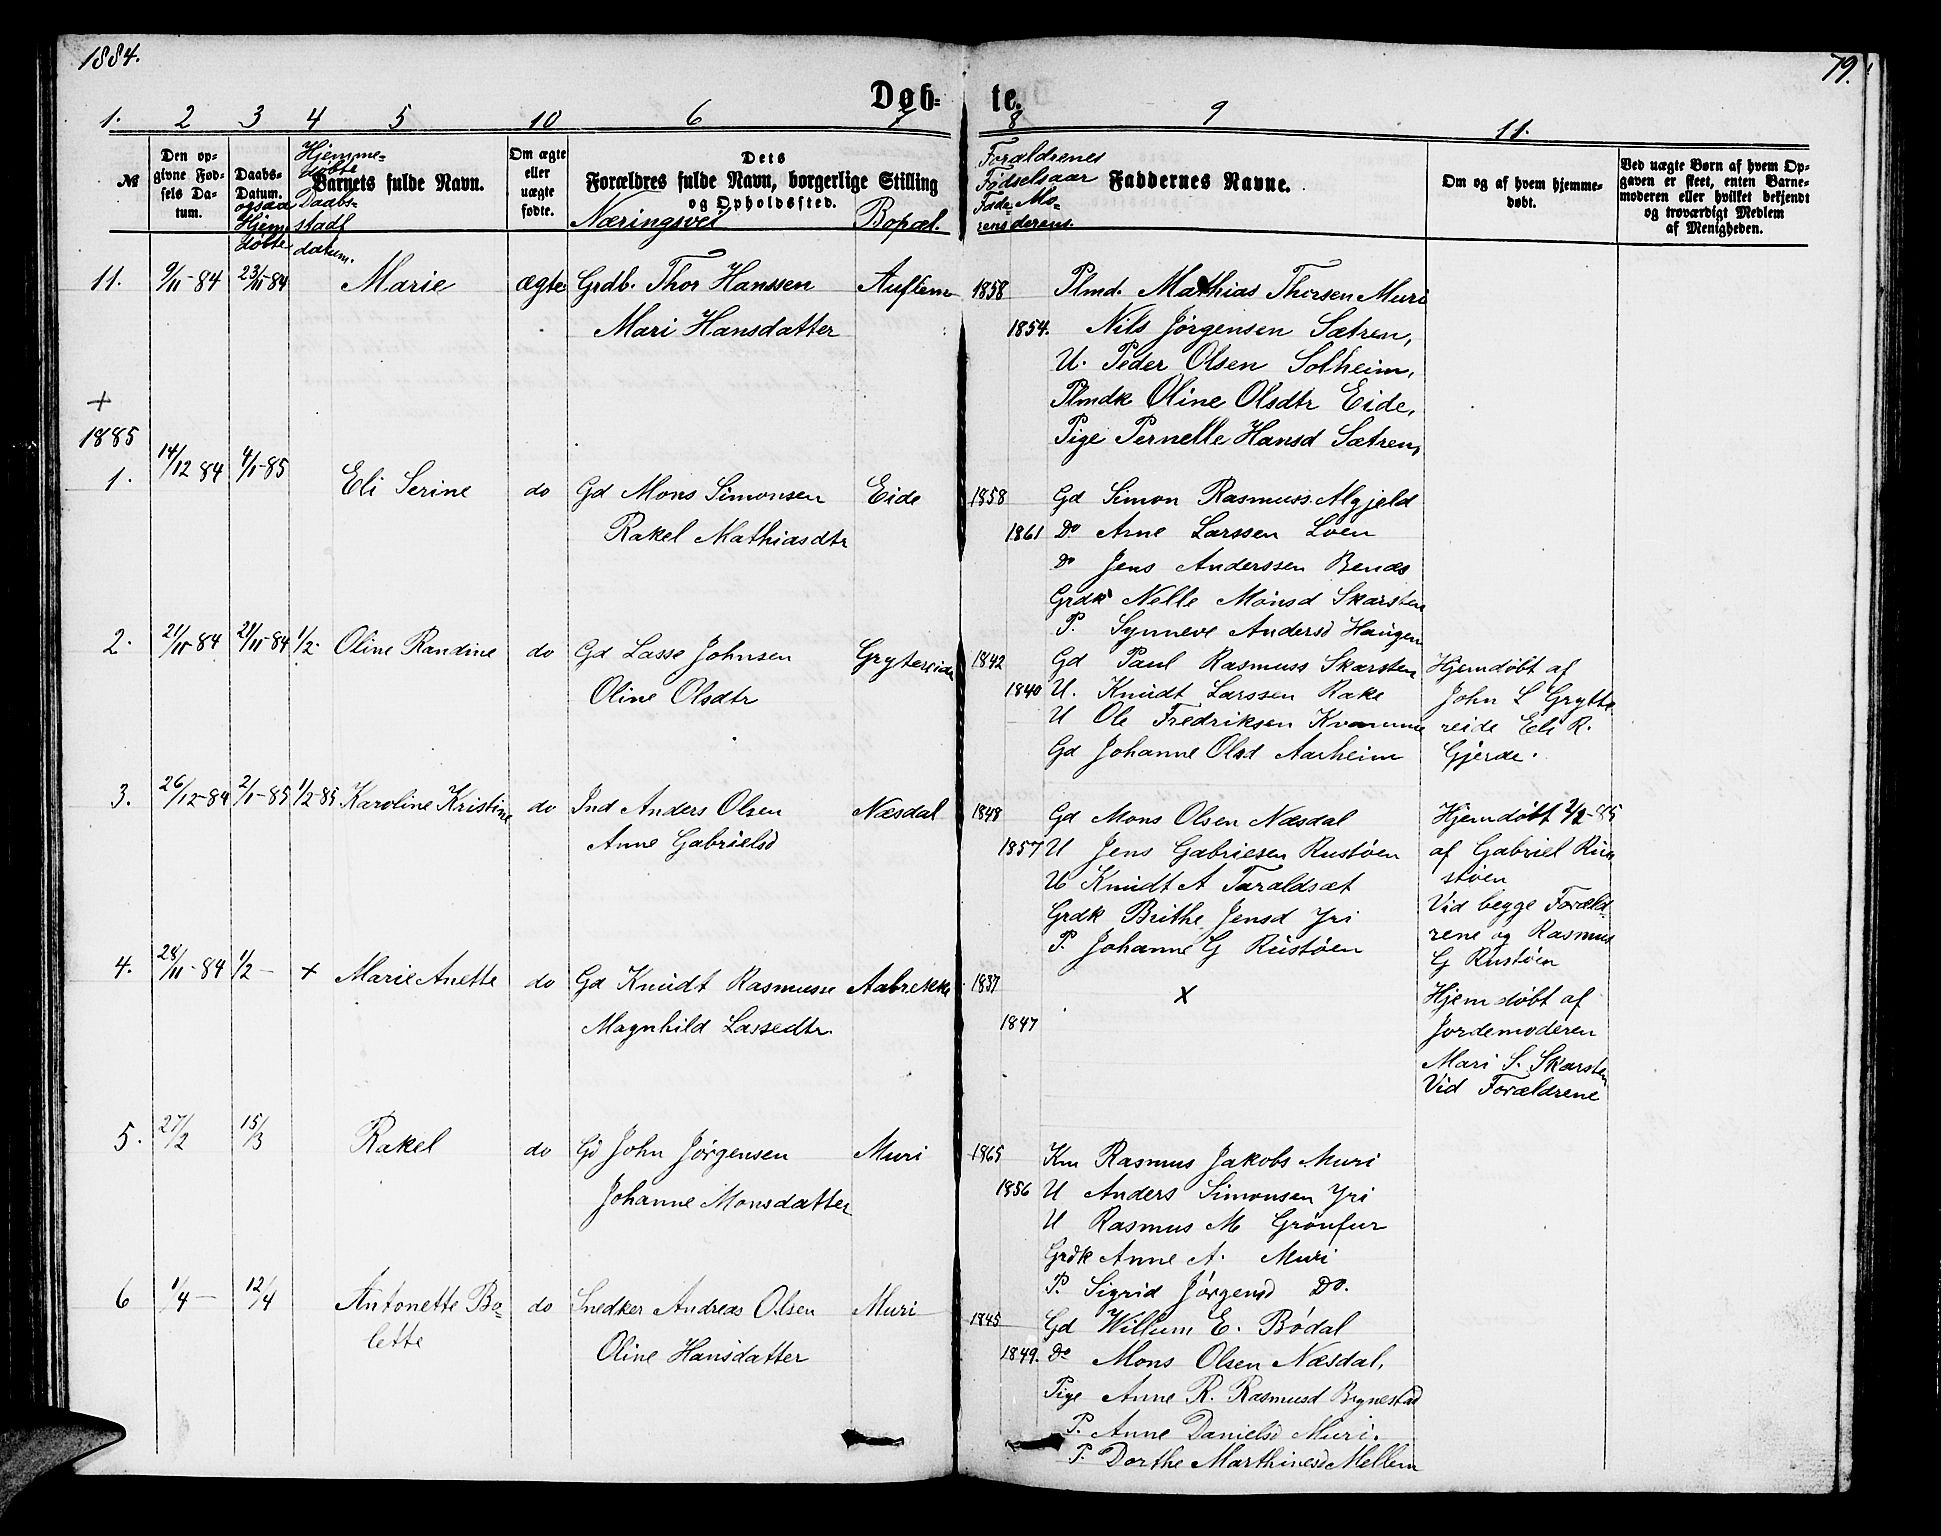 1884.
79.
Døb-
te.
1. 2 3 4 5 10 6 7 8 9 11.
№
Den op-
givne Fød-
sels Da-
tum.
Daabs-
Datum.
ogsaa
Hjem
døbte
Hjemme-
døbte
Daabs-
stadf
datum.
Barnets fulde Navn.
Om ægte
eller
uægte
fødte.
Dets
Forældres fulde Navn, borgerlige Stilling
og Opholdssted.
Næringsvei
Bopæl.
Forældrenes
Fødselsaar
Fade- Mo-
rens derens.
Faddernes Navne.
Om og af hvem hjemme-
døbt.
Ved uægte Børn af hvem Op-
gaven er skeet, enten Barne-
moderen eller hvilket bekjendt
og troværdigt Medlem
af Menigheden.
11. 9/11-84 23/11-84 Marie ægte Grdb. Thor Hanssen Auflem 1858 Plmd. Mathias Thorsen Muri
Mari Hansdatter 1854. Nils Jørgensen Sætren,
U. Peder Olsen Solheim,
Plmdk Oline Olsdtr Eide,
Pige Pernelle Hansd Sætren,
+
1885
1. 14/12 84 4/1-85 Eli Serine do Gd Mons Simonsen Eide 1858 Gd Simon Rasmuss. Algjeld
Rakel Mathiasdtr 1861 Do Arne Larssen Loen
Do Jens Anderssen Benæs
Grdk Nelle Monsd Skarsten
P. Synneve Andersd Haugen
2. 21/11-84 21/11-84 1/2- Oline Randine do Gd Lasse Johnsen Grytereide 1842 Gd Paul Rasmuss Skarsten Hjemdøbt af
Oline Olsdtr 1840 U. Knudt Larssen Rake John L Grytte
U Ole Fredriksen Kvamme reide Eli R.
Gd Johanne Olsd Aarheim Gjerde.
3. 26/12-84 2/1-85 1/2-85 Karoline Kristine do Ind Anders Olsen Næsdal 1848 Gd Mons Olsen Næsdal Hjemdøbt 2/2-85
Anne Gabrielsd 1857 U Jens Gabrielsen Rustøen af Gabriel Rus
U Knudt A Taraldsæt støen
Grdk Brithe Jensd Yri Vid begge Foræld-
P. Johanne G Rustøen rene og Rasmus
G Rustøen
4. 28/11-84 1/2- + Marie Anette do Gd Knudt Rasmusse Aabrekke 1837 x Hjemdøbt af
Magnhild Lassedtr. 1847 Jordemoderen
Mari S. Skarsten
Vid Forældrene
5. 27/2 15/3 Rakel do Gd John Jørgensen Muri 1865 Km Rasmus Jakobs Muri
Johanne Monsdatter 1856 U Anders Simonsen Yri
U Rasmus M Grønfur
Grdk Anne A. Muri
P. Sigrid Jørgensd Do.
6 1/4- 12/4 Antonette Bo- do Snedker Andreas Olsen Muri 1845 Gd Willum E. Bødal
lette Oline Hansdatter 1849. Do Mons Olsen Næsdal,
Pige Anne R. Rasmusd Brynestad
P. Anne Danielsd Muri.
P. Dorthe Marthinesd Mellem